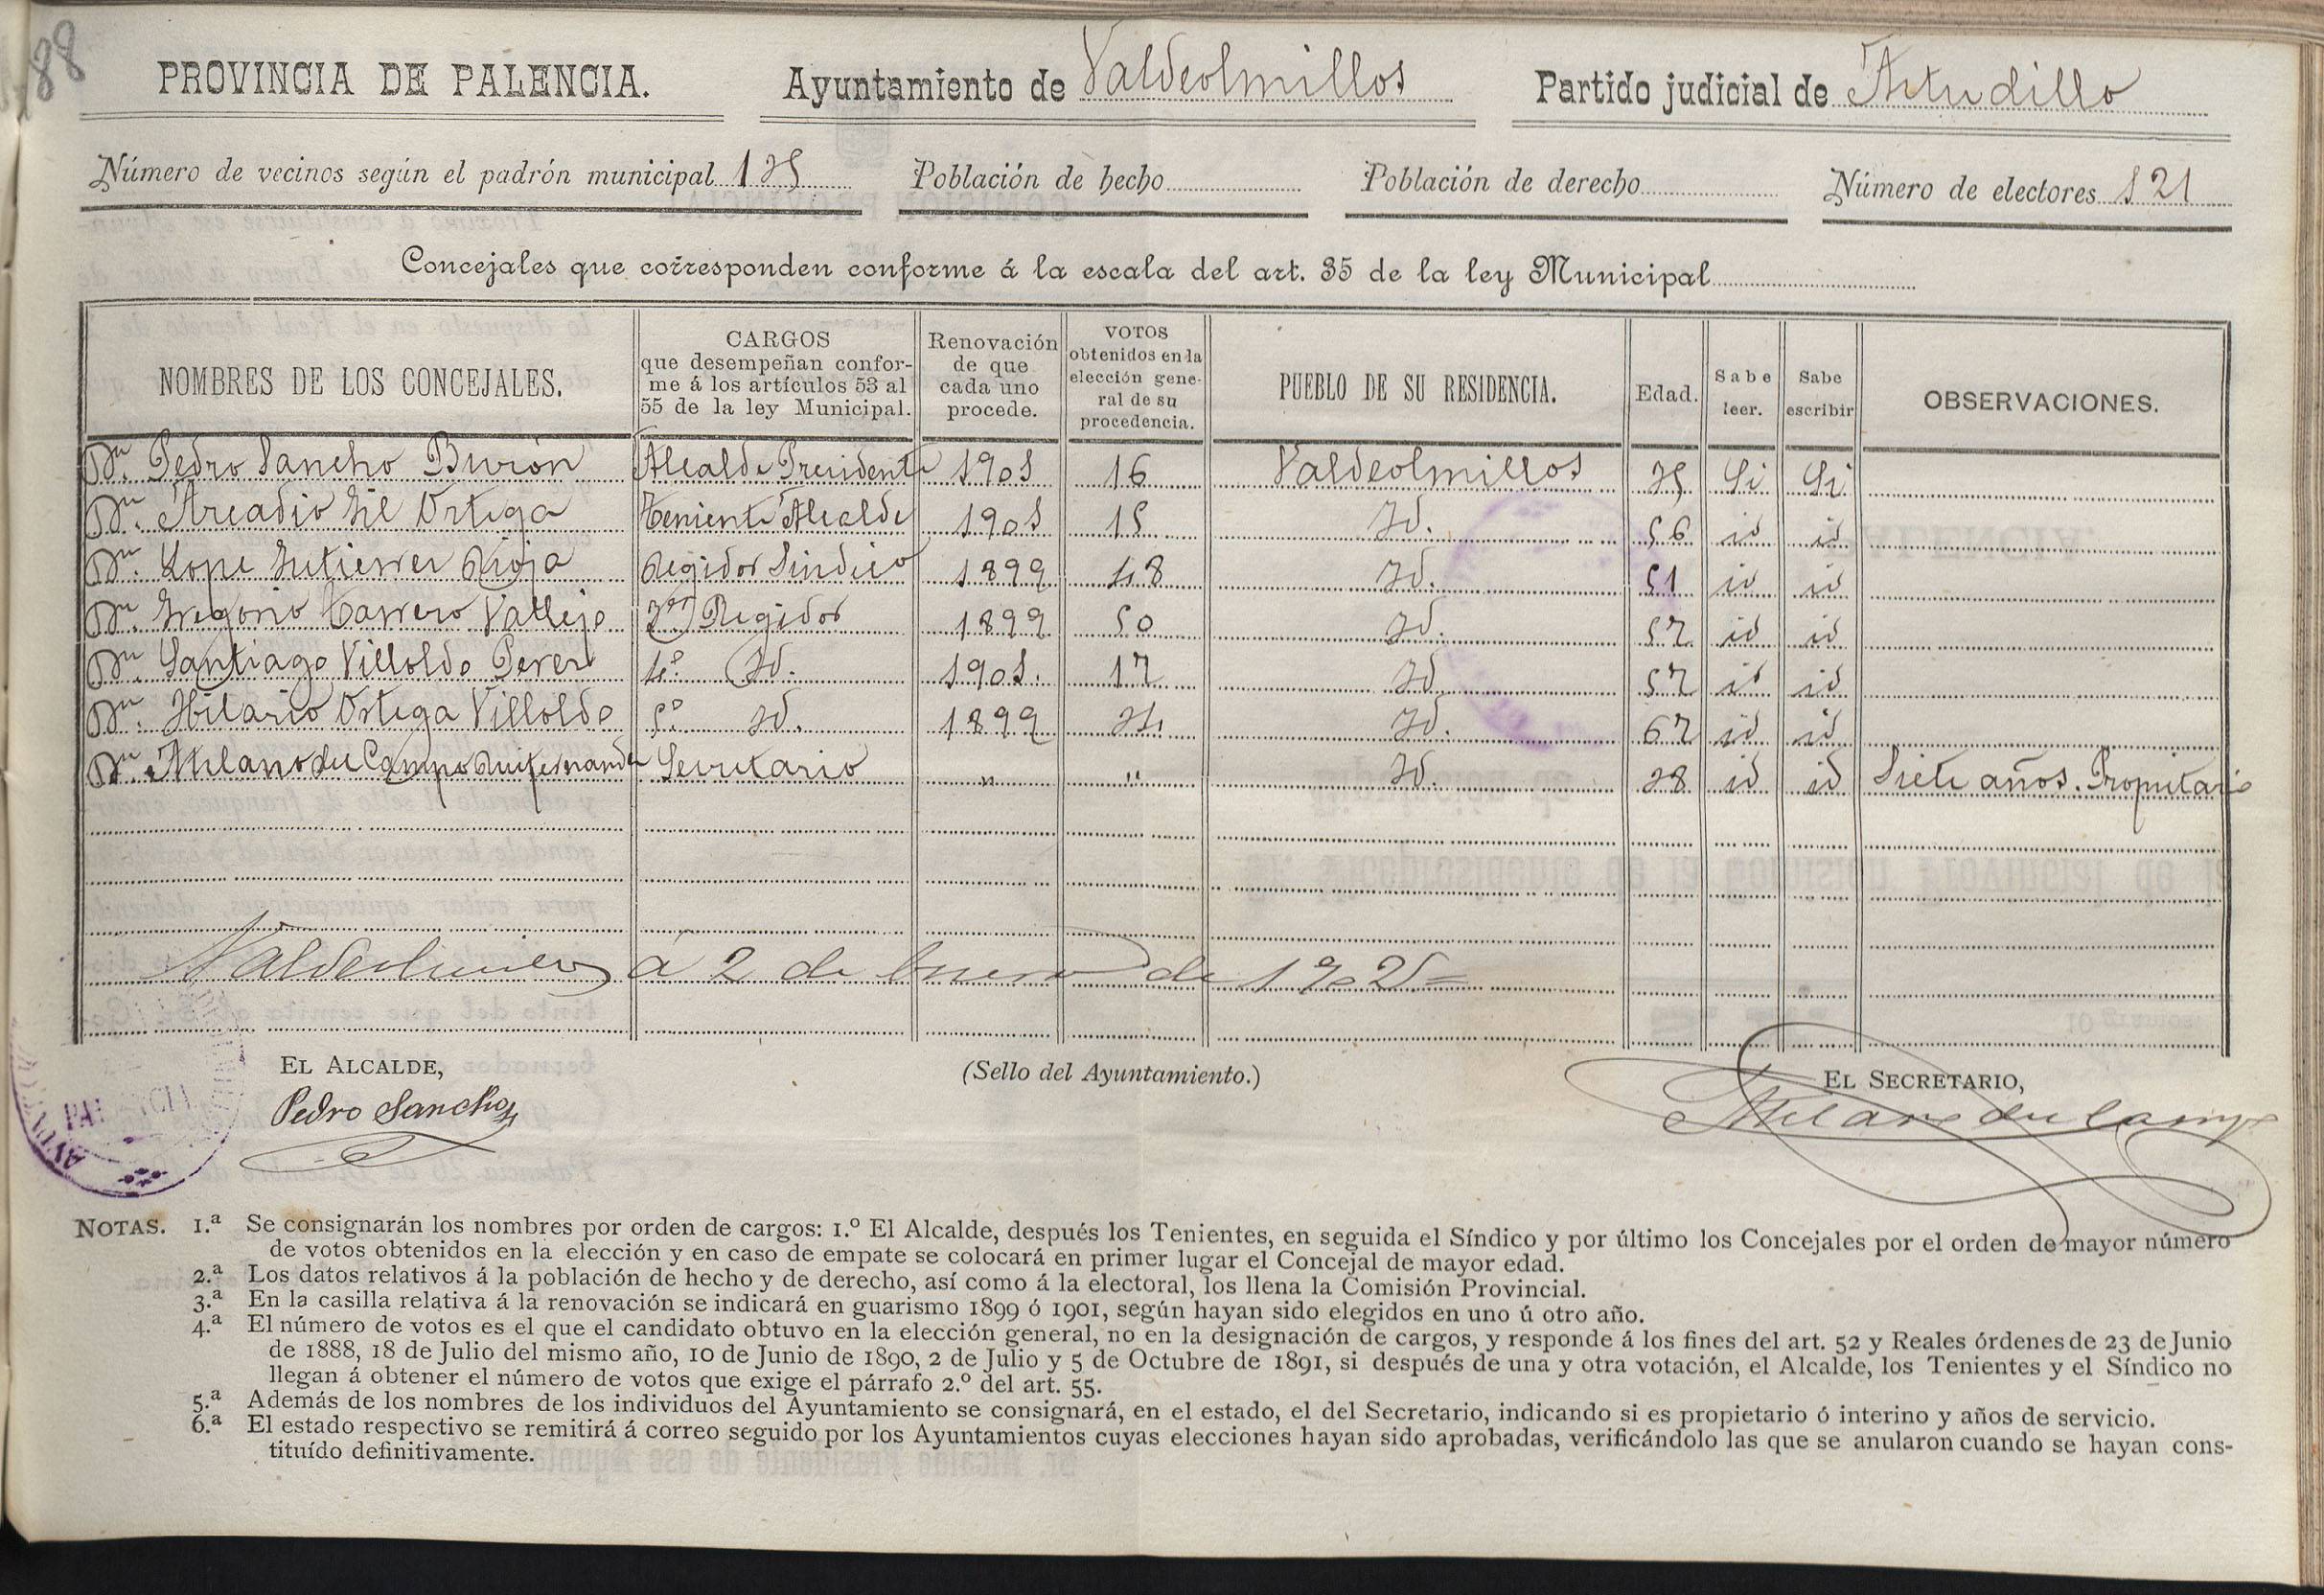 88
PROVINCIA DE PALENCIA. Ayuntamiento de Valdeolmillos Partido judicial de Astudillo
Número de vecinos según el padrón municipal 125 Población de hecho Población de derecho Número de electores 121
Concejales que corresponden conforme á la escala del art. 35 de la ley Municipal
NOMBRES DE LOS CONCEJALES. CARGOS que desempeñan conforme á los artículos 53 al 55 de la ley Municipal. Renovación de que cada uno procede. VOTOS obtenidos en la elección general de su procedencia. PUEBLO DE SU RESIDENCIA. Edad. Sabe leer. Sabe escribir OBSERVACIONES.
Dn. Pedro Sancho Alcalde Presidente 1901 16 Valdeolmillos 35 Si Si
Dn. Arcadio Gil Ortega Teniente Alcalde 1901 15 Id. 56 id id
Dn. Lope Gutierrez Rioja Regidor Sindico 1899 48 Id. 51 id id
Dn. Gregorio Tarrero Vallejo 3er Regidor 1899 50 Id. 57 id id
Dn. Santiago Villoldo Perez 4º Id. 1901. 17 Id. 57 id id
Dn. Hilario Ortega Villoldo 5º Id. 1899 24 Id. 67 id id
Dn. Atilano del Campo Secretario " " Id. 28 id id Siete años. Propietario
Valdeolmillos á 2 de Enero de 1902=
EL ALCALDE, (Sello del Ayuntamiento.) EL SECRETARIO,
Pedro Sancho Atilano del Campo
NOTAS. 1.ª Se consignarán los nombres por orden de cargos: 1.º El Alcalde, después los Tenientes, en seguida el Síndico y por último los Concejales por el orden de mayor número
de votos obtenidos en la elección y en caso de empate se colocará en primer lugar el Concejal de mayor edad.
2.ª Los datos relativos á la población de hecho y de derecho, así como á la electoral, los llena la Comisión Provincial.
3.ª En la casilla relativa á la renovación se indicará en guarismo 1899 ó 1901, según hayan sido elegidos en uno ú otro año.
4.ª El número de votos es el que el candidato obtuvo en la elección general, no en la designación de cargos, y responde á los fines del art. 52 y Reales órdenes de 23 de Junio
de 1888, 18 de Julio del mismo año, 10 de Junio de 1890, 2 de Julio y 5 de Octubre de 1891, si después de una y otra votación, el Alcalde, los Tenientes y el Síndico no
llegan á obtener el número de votos que exige el párrafo 2.º del art. 55.
5.ª Además de los nombres de los individuos del Ayuntamiento se consignará, en el estado, el del Secretario, indicando si es propietario ó interino y años de servicio.
6.ª El estado respectivo se remitirá á correo seguido por los Ayuntamientos cuyas elecciones hayan sido aprobadas, verificándolo las que se anularon cuando se hayan cons-
tituído definitivamente.